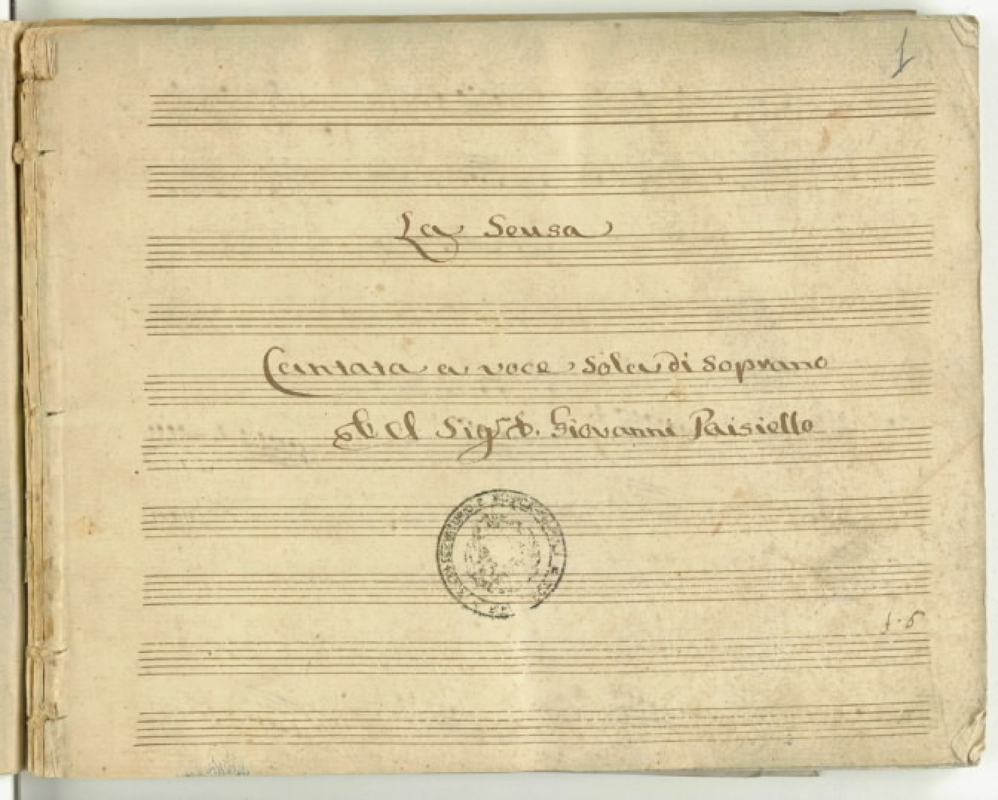 1
La Scusa
Cantata a voce Sola di Soprano
Del Sigr. D. Giovanni Paisiello